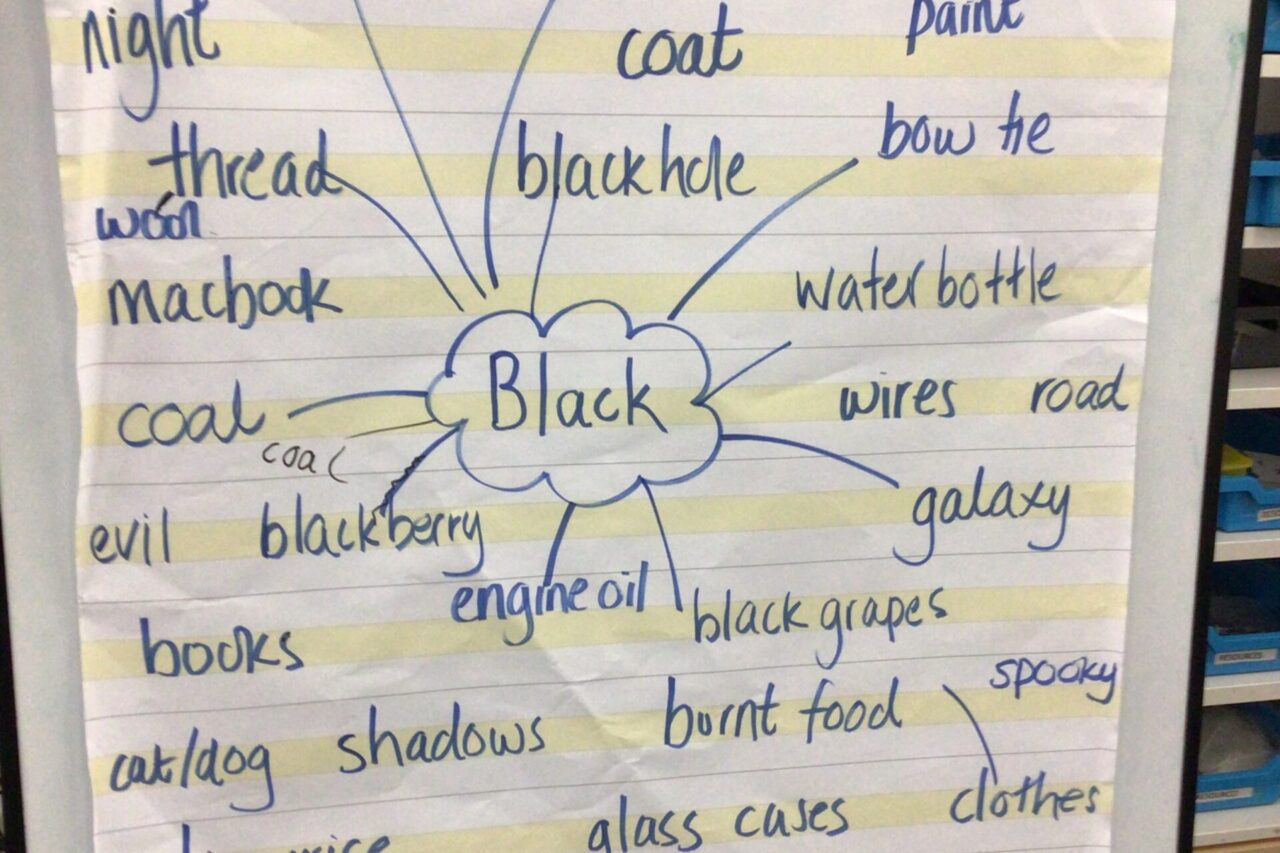 night
coat
paint
thread
blackhole
bow tie
wool
macbook
water bottle
Black
coal
wires road
coal
evil blackberry
galaxy
engine oil
black grapes
books
spooky
burnt food
cat/dog shadows
clothes
glass cases
RESOURCES
RESOURCES